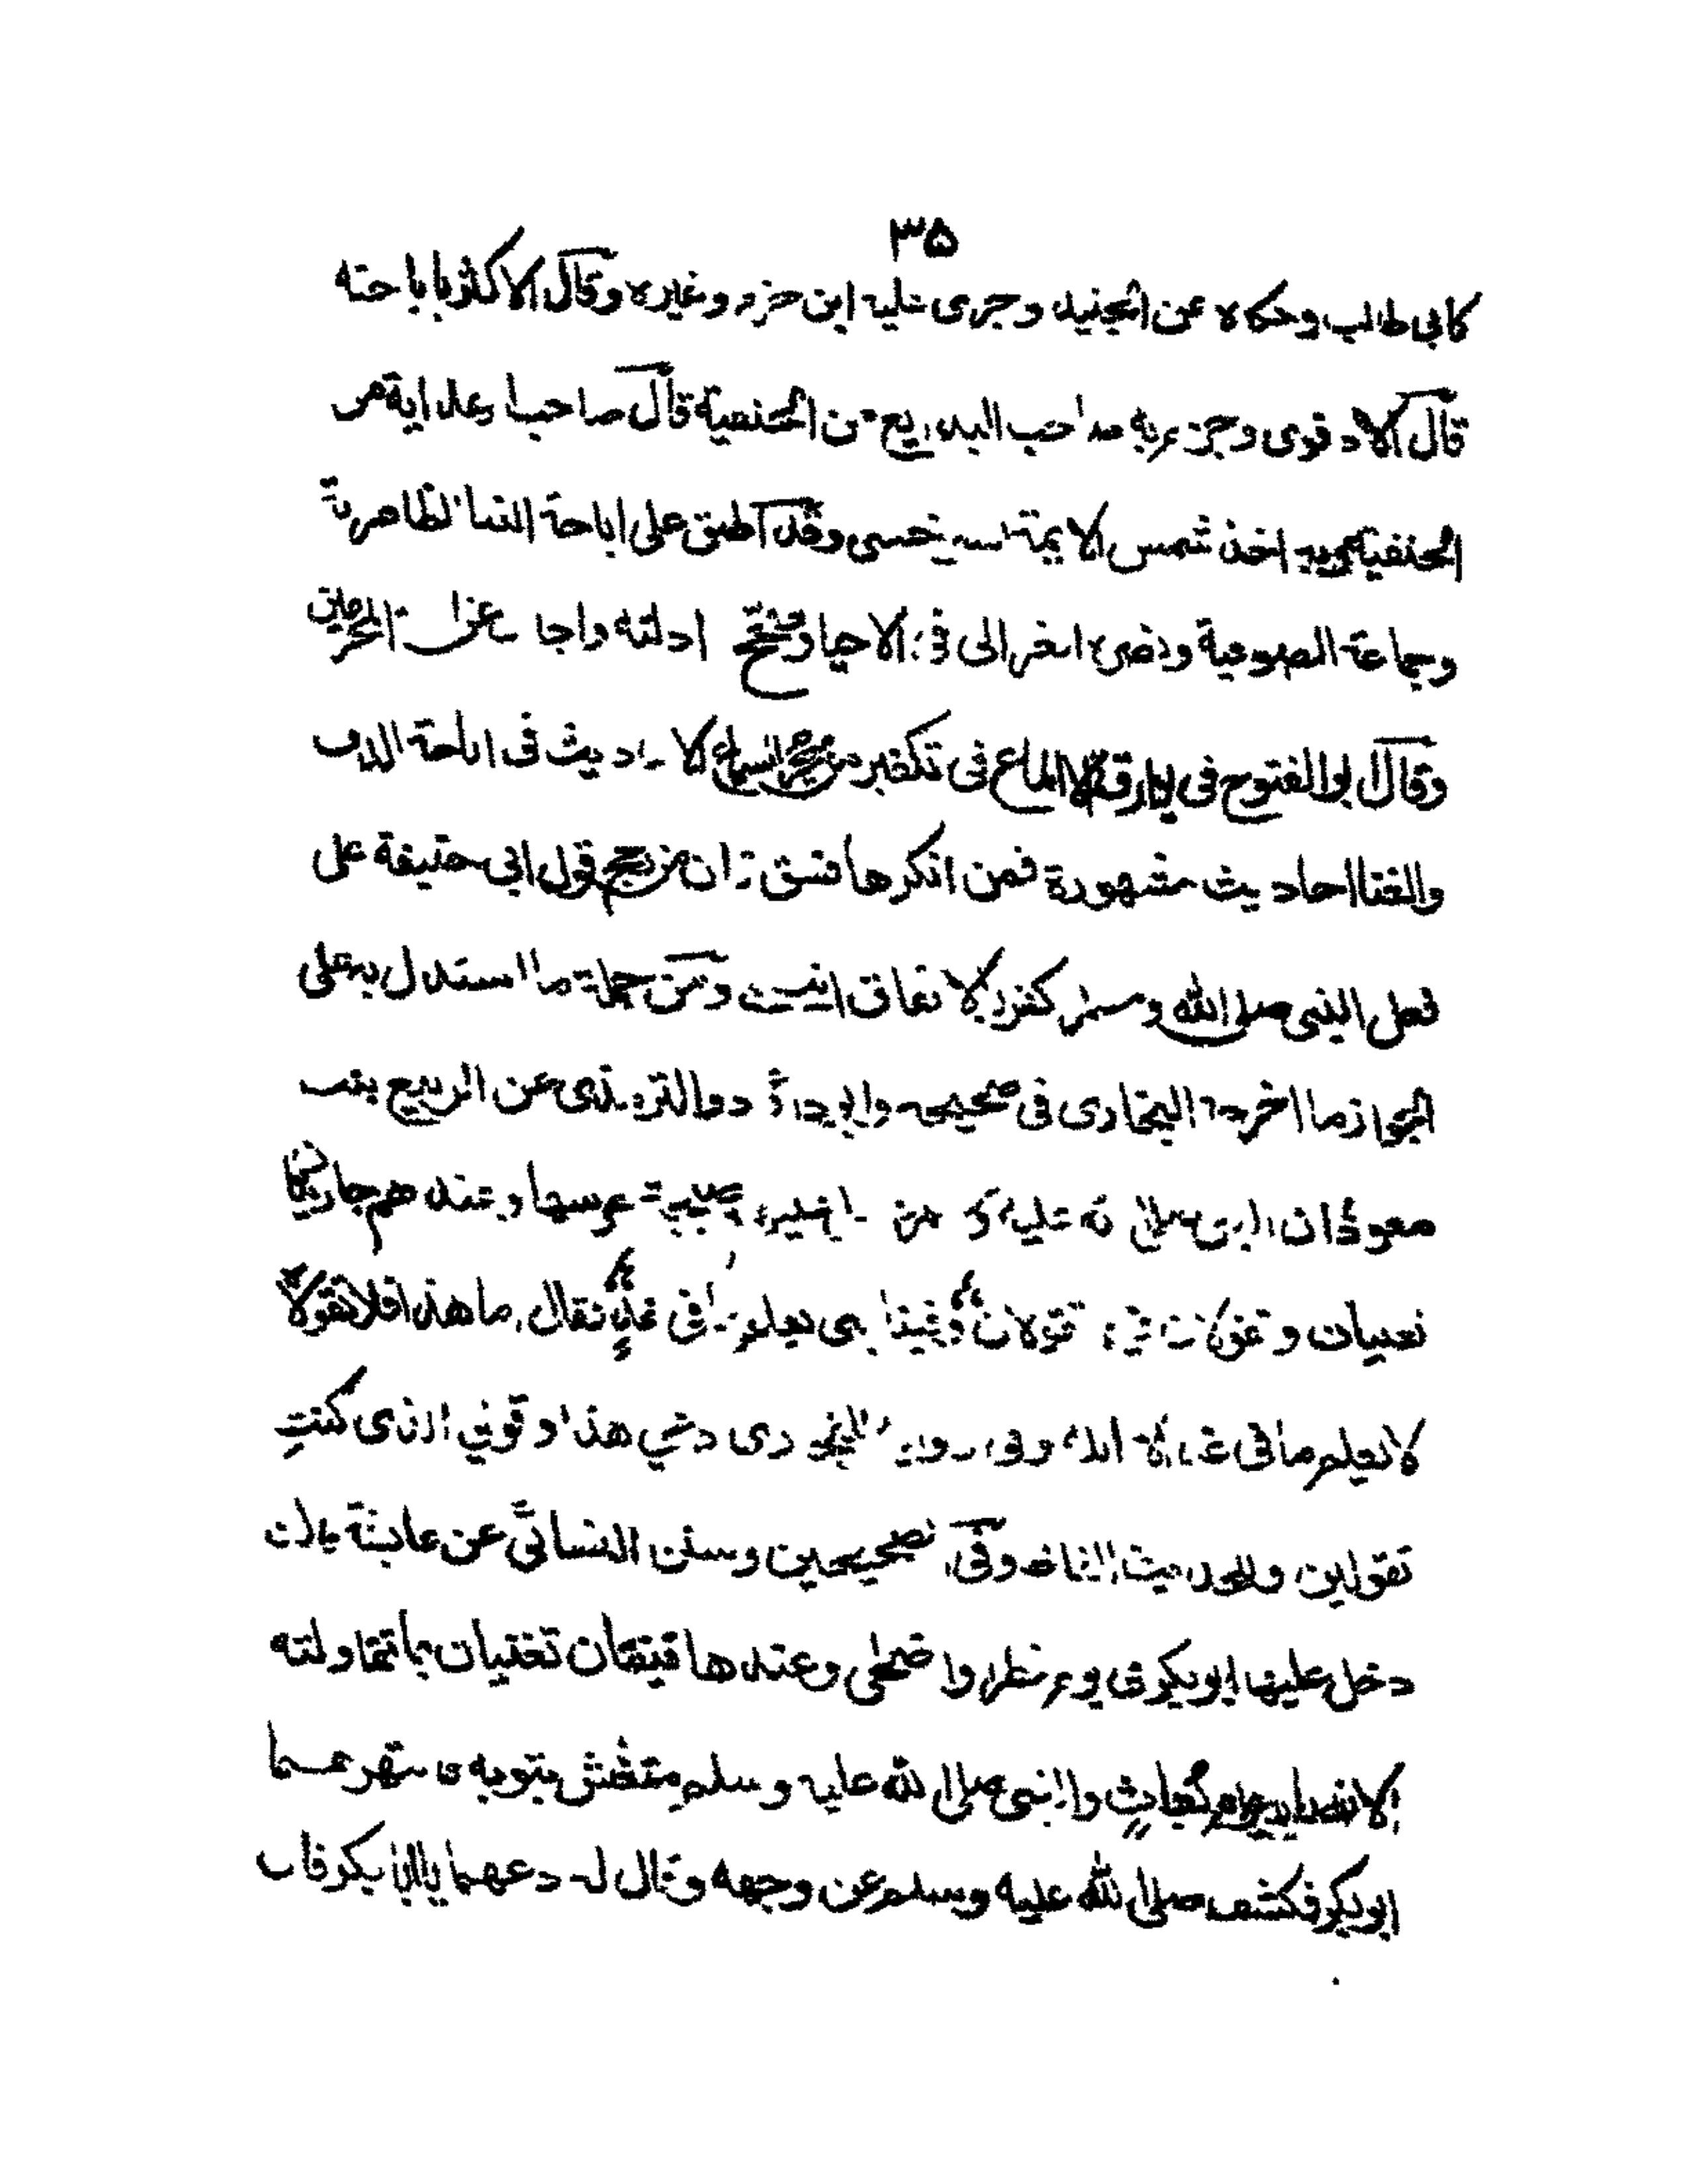 ٣٥
كابى طالب وحكاه عن الجنيد وجرى عليه ابن حزم وغيره وقال الاكثر باباحته
قال الادفوى وجزم به صاحب البدايع من الحنفية قال صاحب الهداية من
الحنفية وبه اخذ شمس الايمة السرخسى وقد اطلق على اباحة الغنا الظاهرية
وجماعة الصوفية ونصره الغزالى فى الاحيا ونقح ادلته واجا عن المحرمين
وقال ابو الفتوح فى بوارق الالماع فى تكفير من يحرم السماع الاحاديث فى اباحة الدف
والغنا احاديث مشهورة فمن انكرها فسق فان من رجح قول ابى حنيفة على
فعل النبى صلى الله وسلم كفر بالاتفاق ومن جملة ما استدل به على
الجواز ما اخرجه البخارى فى صحيحه وابو داؤد والترمذى عن الربيع بنت
معوذ ان النبى صلى الله عليه عرسها وعندهم جاريتان
تغنيان وتقولان وفينا نبى يعلم ما فى غدٍ فقال ما هذا فلا تقولاه
لا يعلم ما فى غد الا الله وفى رواية البخارى دعى هذا وقولى الذى كنتِ
تقولين والحديث الفاظ وفى الصحيحين وسنن النسائى عن عايشة قالت
دخل عليها ابوبكر فى يوم فطر او اضحى وعندها قينتان تغنيان بما تقاولته
الانصار يوم بعاثٍ والنبى صلى الله عليه وسلم متغش بثوبه فانتهرهما
ابوبكر فكشف صلى الله عليه وسلم عن وجهه وقال له دعهما يا ابا بكر فان